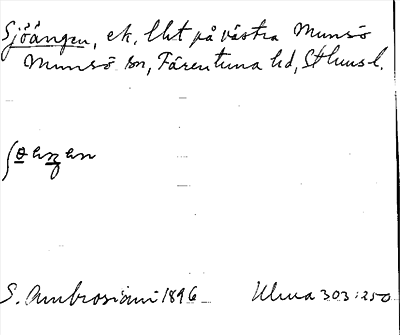 Sjöängen, ek. lht på västra Munsö
Munsö sn, Färentuna hd, Sthms l.
S. Ambrosiani 1896 Ulma 303:250